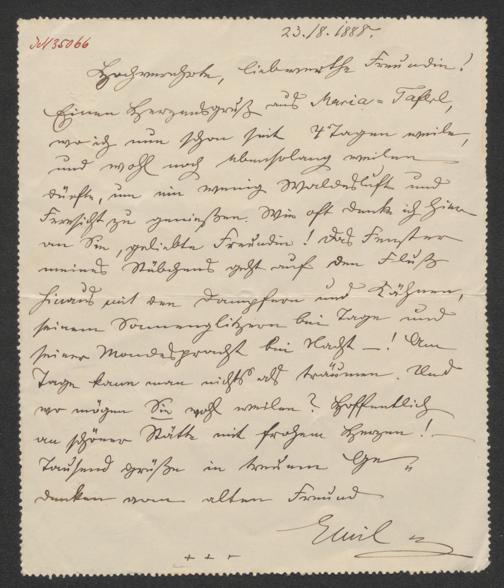 23./8. 1888.
Hochverehrte, liebwerthe Freundin!
Einen Herzensgruß aus Maria-Taferl,
wo ich nun schon seit 4 Tagen weile,
und wohl noch ebensolang weilen
dürfte, um ein wenig Waldesluft und
Fernsicht zu genießen. Wie oft denke ich hier
an Sie, geliebte Freundin! Das Fenster
meines Stübchens geht auf den Fluß
hinaus mit den Dampfern und Kähnen,
seinem Sonnenglitzern bei Tage und
seiner Mondespracht bei Nacht –! Am
Tage kann man nichts als träumen. Und
wo mögen Sie wohl weilen? Hoffentlich
an schöner Stätte mit frohem Herzen!
Tausend Grüße in treuem Ge„
denken vom alten Freund
Emil
+ + +